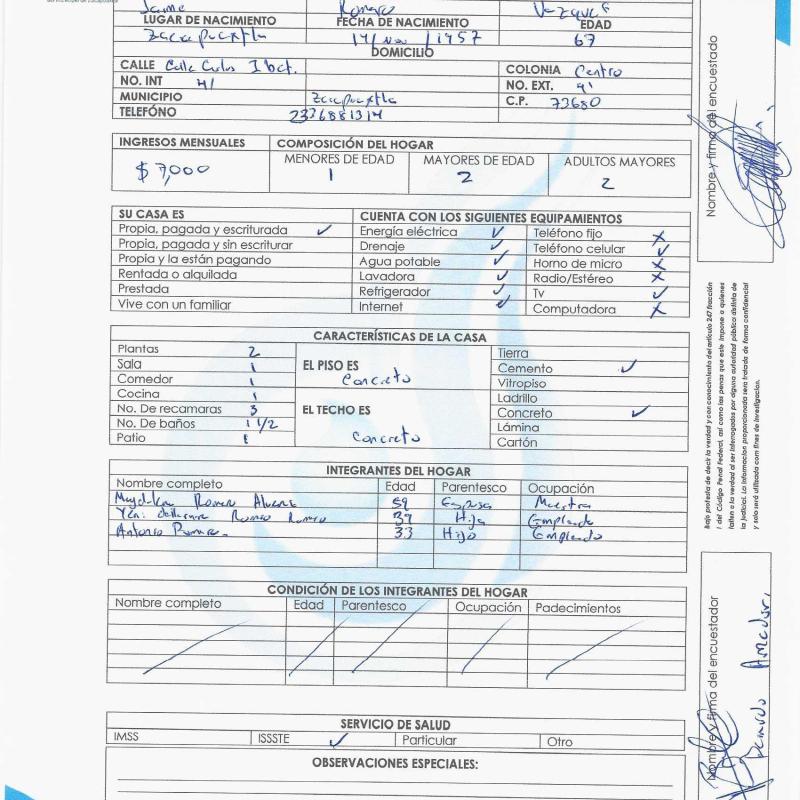 Jaime Romero Vazquez
LUGAR DE NACIMIENTO FECHA DE NACIMIENTO EDAD
Zacapoaxtla 14/Nov/1957 67
DOMICILIO
CALLE Calle Carlos I bct. COLONIA Centro
NO. INT 41 NO. EXT. 41
MUNICIPIO Zacapoaxtla C.P. 73680
TELEFÓNO 2336881314
INGRESOS MENSUALES COMPOSICIÓN DEL HOGAR
MENORES DE EDAD MAYORES DE EDAD ADULTOS MAYORES
$ 7,000 1 2 2
SU CASA ES CUENTA CON LOS SIGUIENTES EQUIPAMIENTOS
Propia, pagada y escriturada ✓ Energía eléctrica ✓ Teléfono fijo X
Propia, pagada y sin escriturar Drenaje ✓ Teléfono celular ✓
Propia y la están pagando Agua potable ✓ Horno de micro X
Rentada o alquilada Lavadora ✓ Radio/Estéreo X
Prestada Refrigerador ✓ Tv ✓
Vive con un familiar Internet ✓ Computadora X
CARACTERÍSTICAS DE LA CASA
Plantas 2 Tierra
Sala 1 EL PISO ES Cemento ✓
Comedor 1 Concreto Vitropiso
Cocina 1 Ladrillo
No. De recamaras 3 EL TECHO ES Concreto ✓
No. De baños 1 1/2 Lámina
Patio 1 Concreto Cartón
INTEGRANTES DEL HOGAR
Nombre completo Edad Parentesco Ocupación
Romero 59 Esposa Maestra
Romero Romero 39 Hija Empleada
Antonio Romero. 33 Hijo Empleado
CONDICIÓN DE LOS INTEGRANTES DEL HOGAR
Nombre completo Edad Parentesco Ocupación Padecimientos
SERVICIO DE SALUD
IMSS ISSSTE ✓ Particular Otro
OBSERVACIONES ESPECIALES:
Nombre y firma del encuestado
Bajo protesta de decir la verdad y con conocimiento del artículo 247 fracción
I del Código Penal Federal, así como las penas que este impone a quienes
falten a la verdad al ser interrogados por alguna autoridad pública distinta de
la judicial. La información proporcionada sera tratada de forma confidencial
y solo será utilizada con fines de investigación.
Nombre y firma del encuestador
Amador.